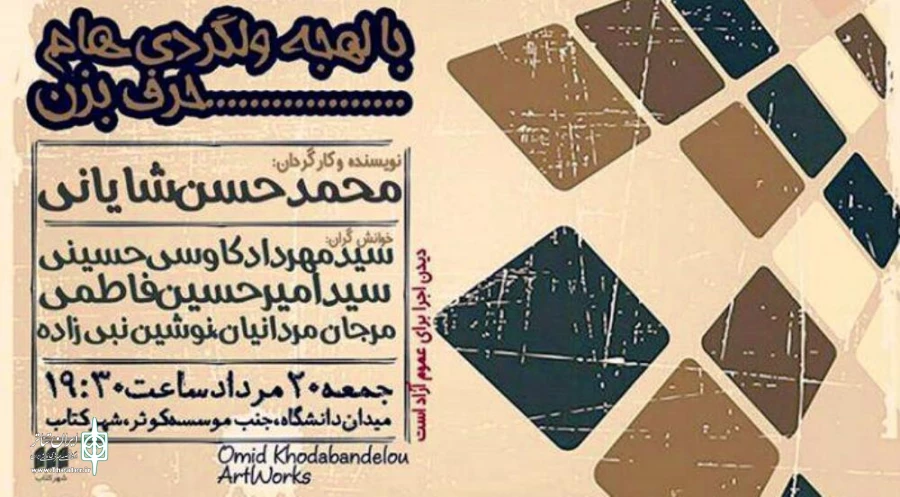 با لهجه ولگردی هام
حرف بزن..................
نویسنده و کارگردان:
محمدحسن شایانی
خوانش گران:
سیدمهرداد کاوسی حسینی
سیدامیرحسین فاطمی
مرجان مردانیان،نوشین نبی زاده
جمعه ۲۰ مرداد ساعت ۱۹:۳۰
میدان دانشگاه،جنب موسسه کوثر،شهرکتاب
دیدن اجرا برای عموم آزاد است
Omid Khodabandelou
ArtWorks
ایران تئاتر
شهرکتاب